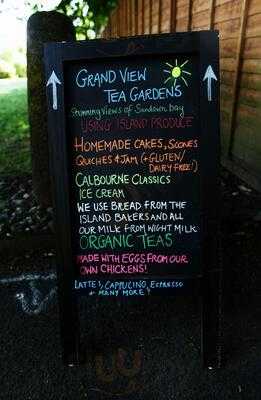 GRAND VIEW
TEA GARDENS
Stunning views of Sandown bay
USING ISLAND PRODUCE
HOMEMADE CAKES, SCONES
QUICHES + JAM (+GLUTEN/
DAIRY FREE!)
CALBOURNE CLASSICS
ICE CREAM
WE USE BREAD FROM THE
ISLAND BAKERS AND ALL
OUR MILK FROM WIGHT MILK
ORGANIC TEAS
MADE WITH EGGS FROM OUR
OWN CHICKENS!
LATTE!, CAPPUCINO, ESPRESSO
+ MANY MORE!